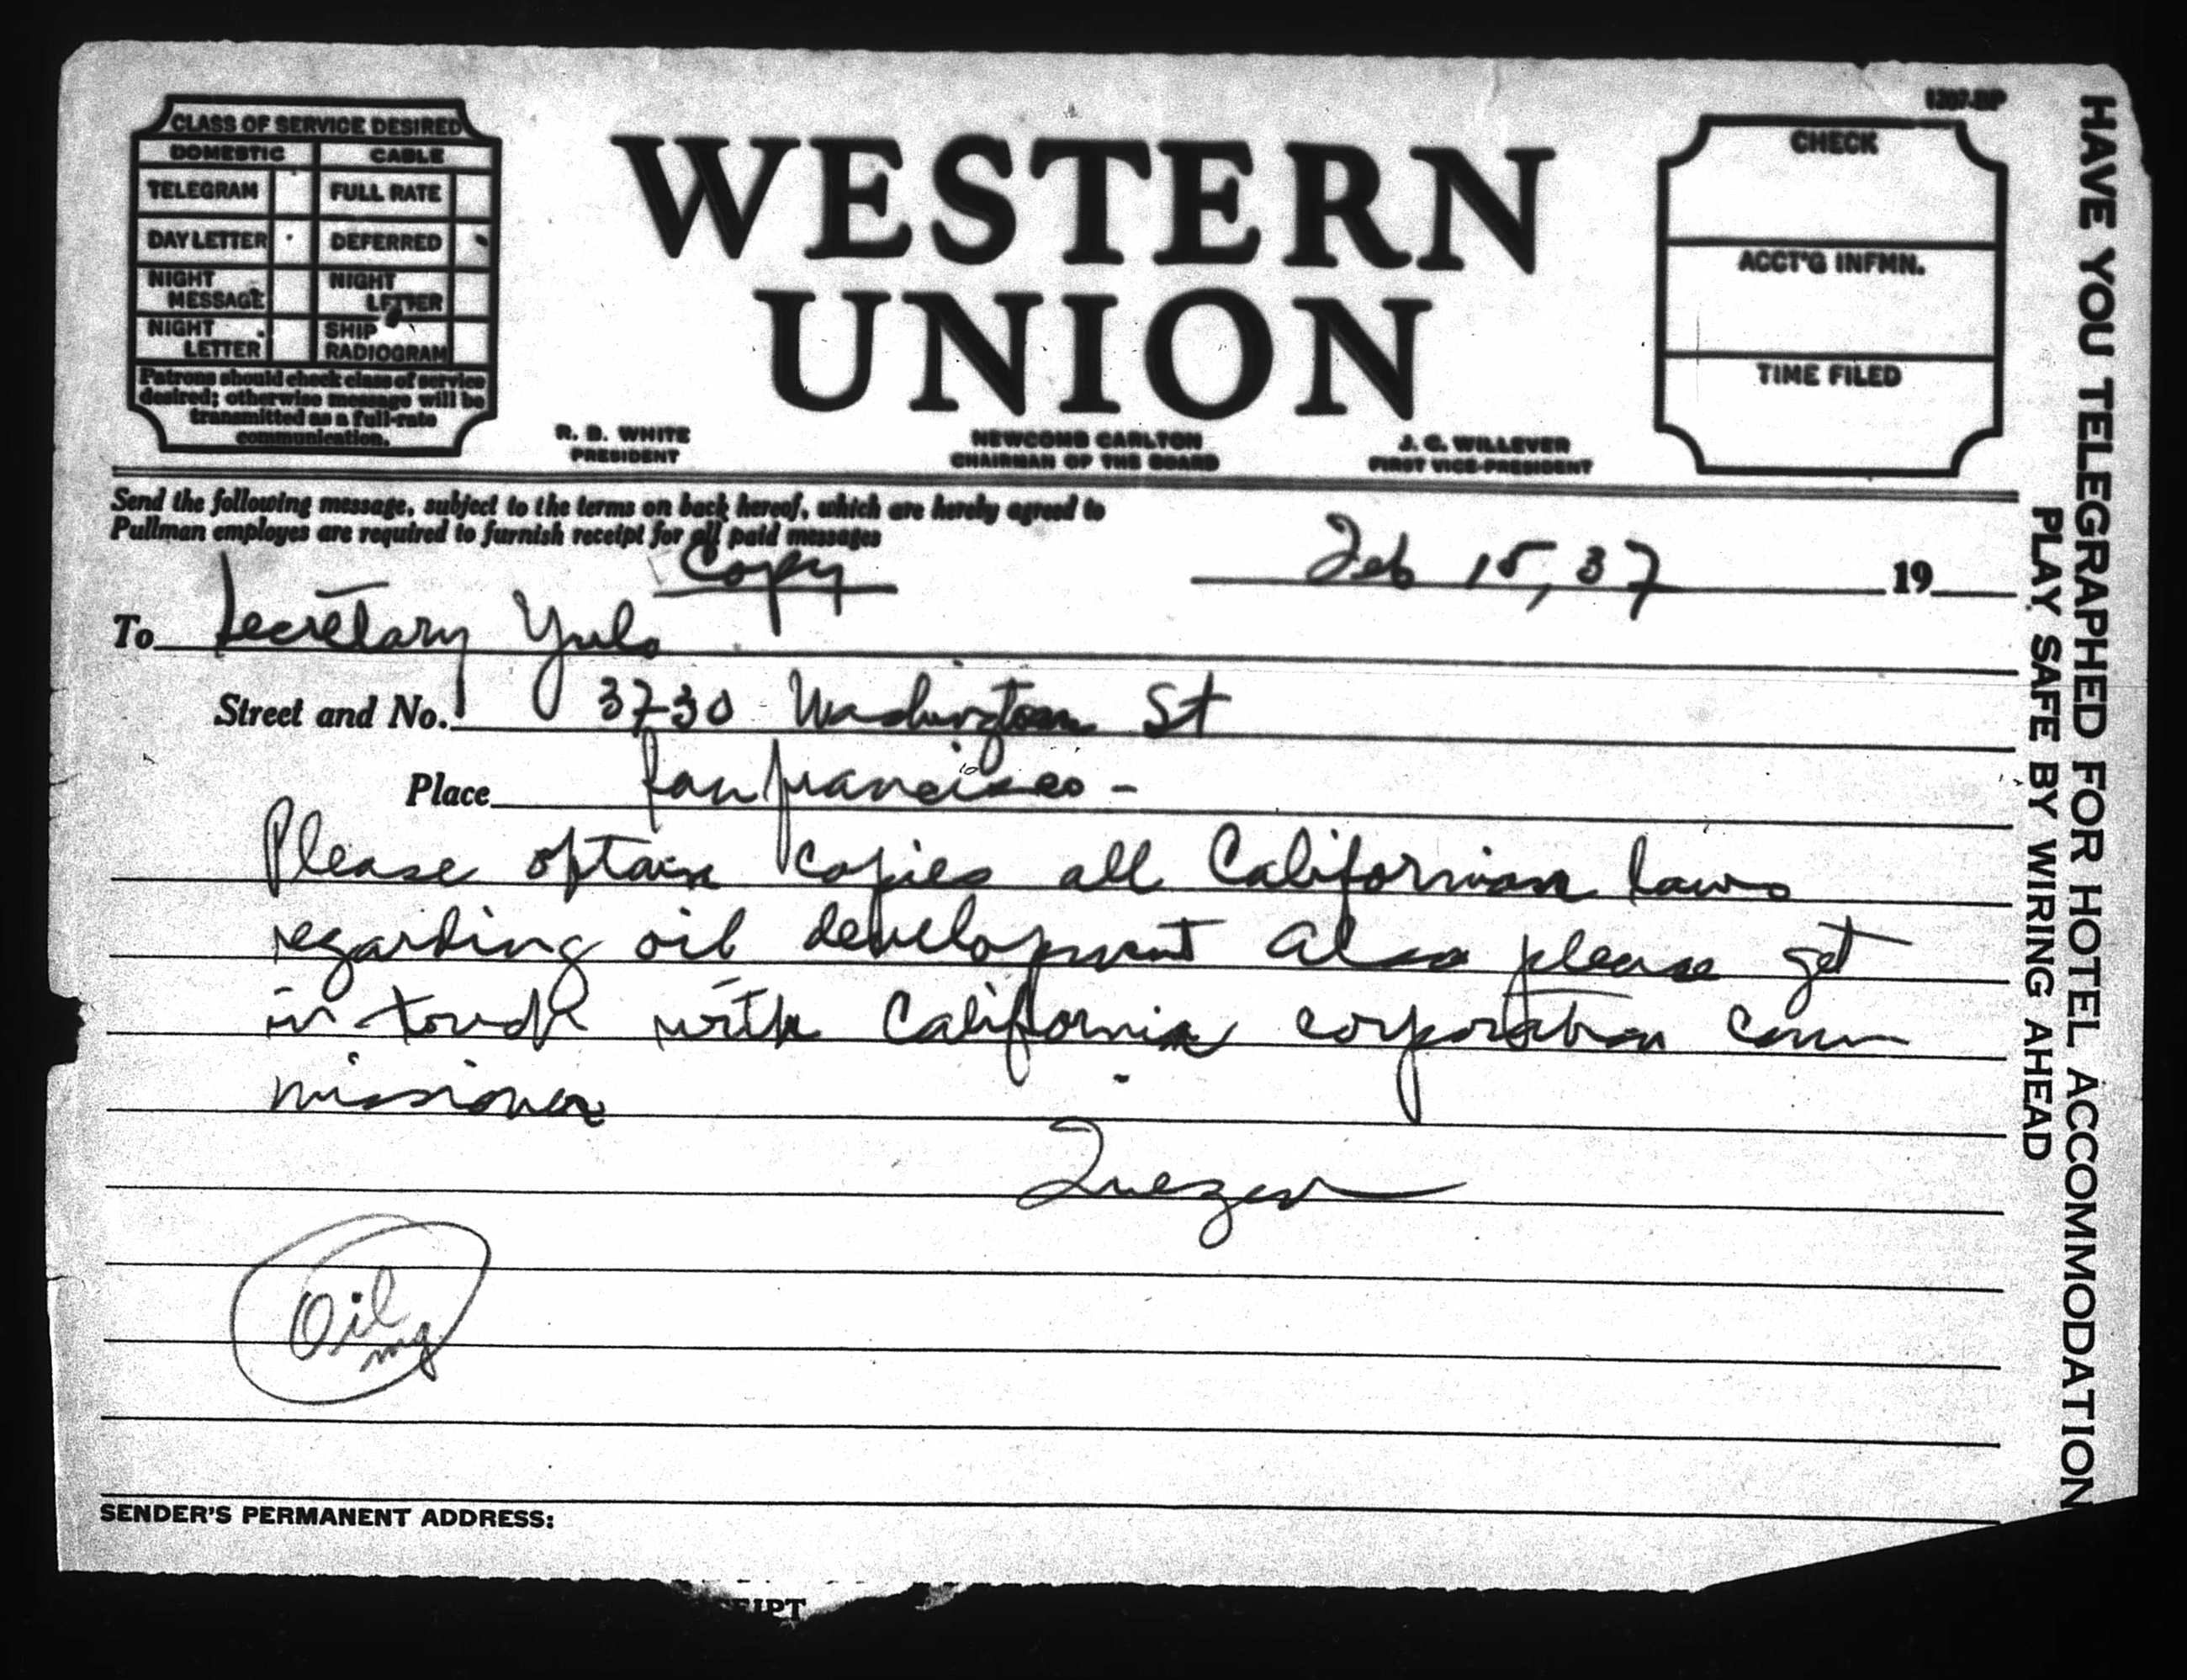 1207-BP
CLASS OF SERVICE DESIRED
DOMESTIC CABLE
TELEGRAM FULL RATE
DAY LETTER DEFERRED
NIGHT MESSAGE NIGHT LETTER
NIGHT LETTER SHIP RADIOGRAM
Patrons should check class of service
desired; otherwise message will be
transmitted as a full-rate
communication.
WESTERN
UNION
R. B. WHITE
PRESIDENT
NEWCOMB CARLTON
CHAIRMAN OF THE BOARD
J. C. WILLEVER
FIRST VICE-PRESIDENT
CHECK
ACCT'G INFMN.
TIME FILED
Send the following message, subject to the terms on back hereof, which are hereby agreed to
Pullman employes are required to furnish receipt for all paid messages
Copy
Feb 15, 37 19
To Secretary Yulo
Street and No. 3730 Washington St
Place San Francisco -
Please optain copies all Californian laws
regarding oil development also please get
in touch with California corporation com
missioner
Quezon
Oil
SENDER'S PERMANENT ADDRESS:
EIPT
HAVE YOU TELEGRAPHED FOR HOTEL ACCOMMODATION
PLAY SAFE BY WIRING AHEAD